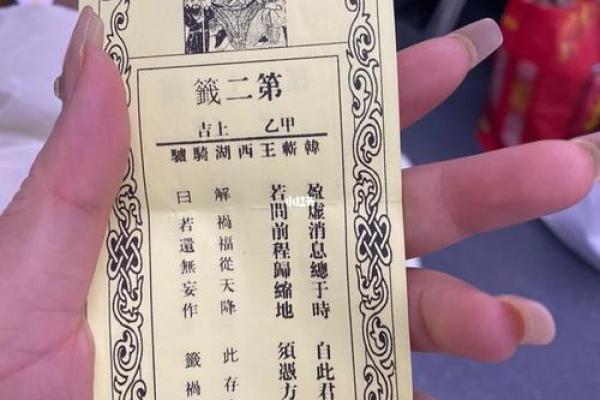 第二籤
甲乙 上吉
韓蘄王西湖騎驢
盈虛消息總于時 自此君
若問前程歸縮地 須憑方
解 禍福從天降 此存
曰 若還無妄作 籤禍
小红书